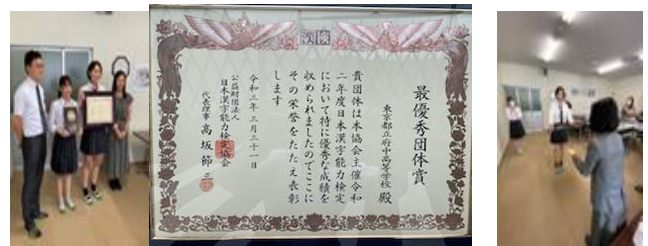 漢検
最優秀団体賞
東京都立府中高等学校 殿
貴団体は本協会主催令和
二年度日本漢字能力検定
において特に優秀な成績を
収められましたのでここに
その栄誉をたたえ表彰
します
令和三年三月三十一日
公益財団法人
日本漢字能力検定協会
代表理事 髙坂節三